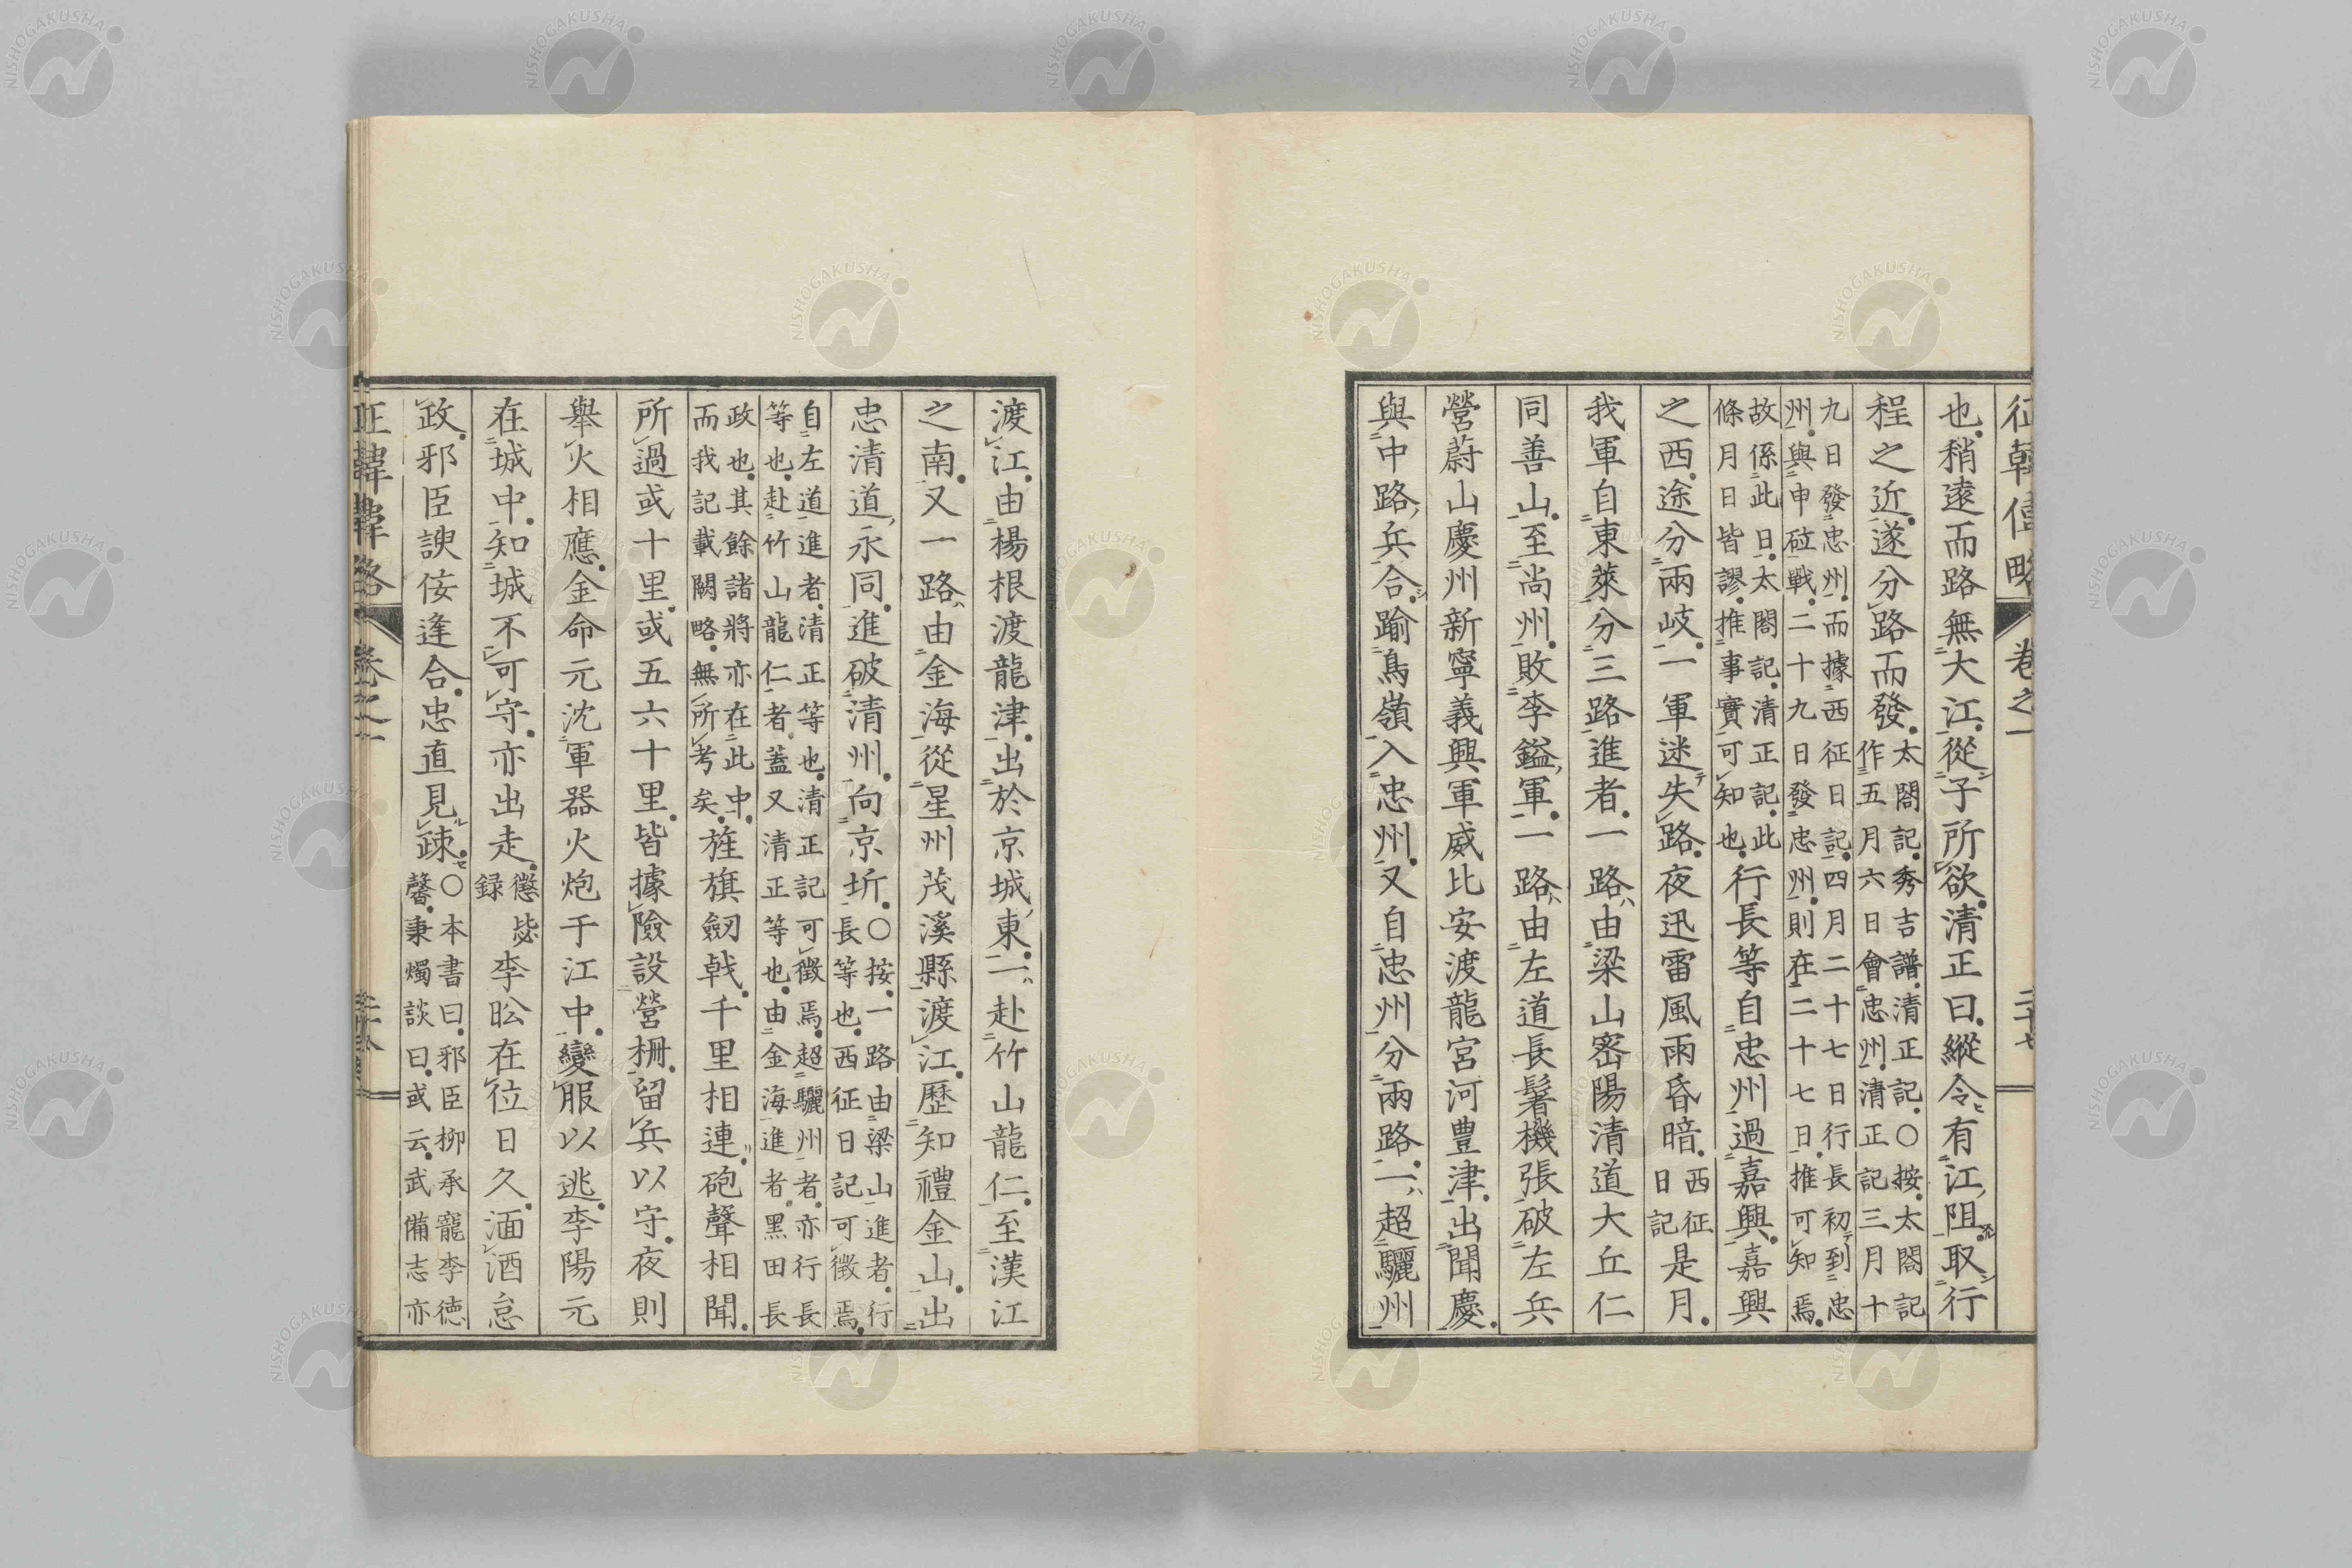 征韓偉略 卷之一 二十七
也稍遠而路無大江從子所欲清正曰縱令有江阻取行
程之近遂分路而發
太閤記秀吉譜清正記○按太閤記
作五月六日會忠州清正記三月十
九日發忠州而據西征日記四月二十七日行長初到忠
州與申砬戰二十九日發忠州則在二十七日推可知焉
故係此日太閤記清正記此
條月日皆謬推事實可知也
行長等自忠州過嘉興嘉興
之西途分兩岐一軍迷失路夜迅雷風雨昏暗
西征
日記
是月
我軍自東萊分三路進者一路由梁山密陽清道大丘仁
同善山至尚州敗李鎰軍一路由左道長鬐機張破左兵
營蔚山慶州新寧義興軍威比安渡龍宮河豊津出聞慶
與中路兵合踰鳥嶺入忠州又自忠州分兩路一超驪州
渡江由楊根渡龍津出於京城東一赴竹山龍仁至漢江
之南又一路由金海從星州茂溪縣渡江歷知禮金山出
忠清道永同進破清州向京圻
○按一路由梁山進者行
長等也西征日記可徵焉
自左道進者清正等也清正記可徵焉超驪州者亦行長
等也赴竹山龍仁者蓋又清正等也由金海進者黑田長
政也其餘諸將亦在此中
而我記載闕略無所考矣
旌旗劔戟千里相連砲聲相聞
所過或十里或五六十里皆據險設營柵留兵以守夜則
舉火相應金命元沈軍器火炮于江中變服以逃李陽元
在城中知城不可守亦出走
懲毖
録
李昖在位日久湎酒怠
政邪臣諛佞逢合忠直見疎
○本書曰邪臣柳承寵李徳
馨秉燭談曰或云武備志亦